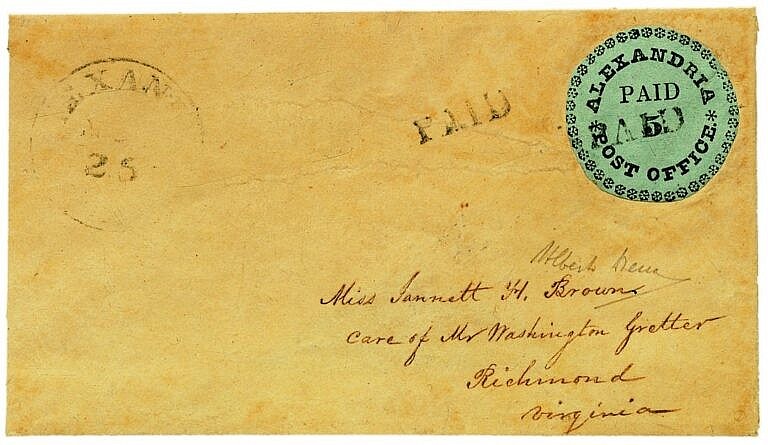 ALEXAN
25
PAID
* ALEXANDRIA *
PAID
PAID
5
POST OFFICE.
Miss Jannett H. Brown
care of Mr Washington Gretter
Richmond
Virginia